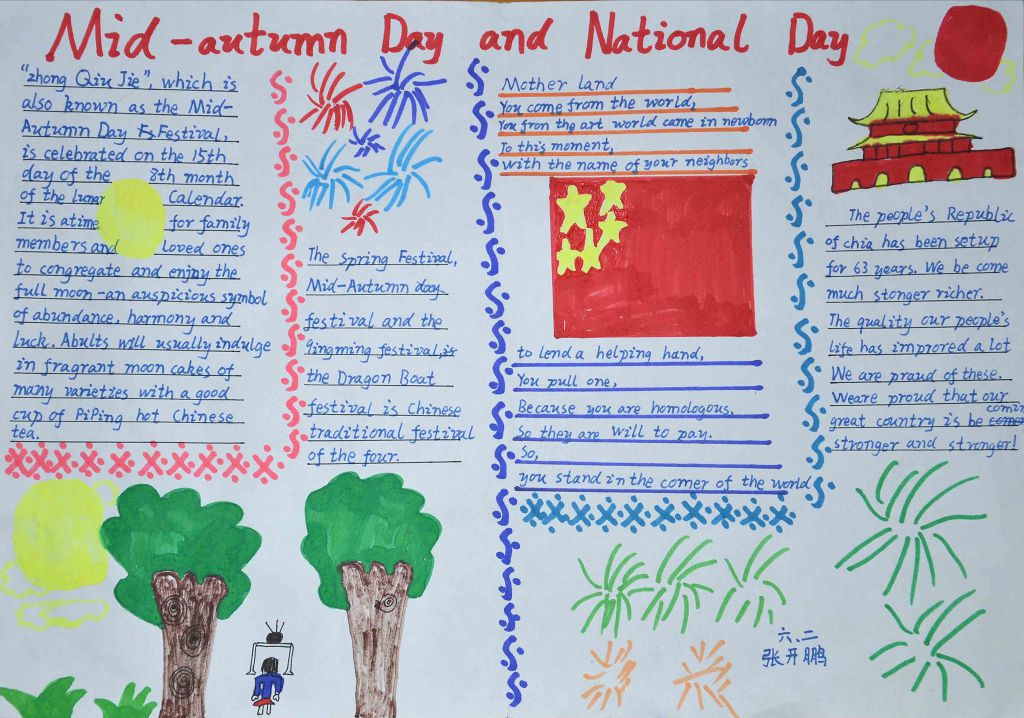 Mid-autumn Day and National Day
"zhong Qiu Jie", which is
also known as the Mid-
Autumn Day Fs.Festival,
is celebrated on the 15th
day of the 8th month
of the lunar Calendar.
It is atime for family
members and loved ones
to congregate and enjoy the
full moon-an auspicious symbol
of abundance, harmony and
luck. Abults will usually indulge
in fragrant moon cakes of
many varieties with a good
cup of PiPing hot Chinese
tea.
The Spring Festival,
Mid-Autumn day
festival and the
qingming festival,is
the Dragon Boat
festival is Chinese
traditional festival
of the four.
Mother land
You come from the world,
You fron the art world came in newbonn
To this moment,
with the name of your neighbors
to lend a helping hand,
You pull one,
Because you are homologous,
So they are will to pay.
So,
you stand in the corner of the world
The people's Republic
of chia has been setup
for 63 years. We be come
much stonger richer.
The quality our people's
life has improred a lot
We are praud of these.
Weare proud that our
great country is be coming
stronger and stronger!
六、二
张开鹏